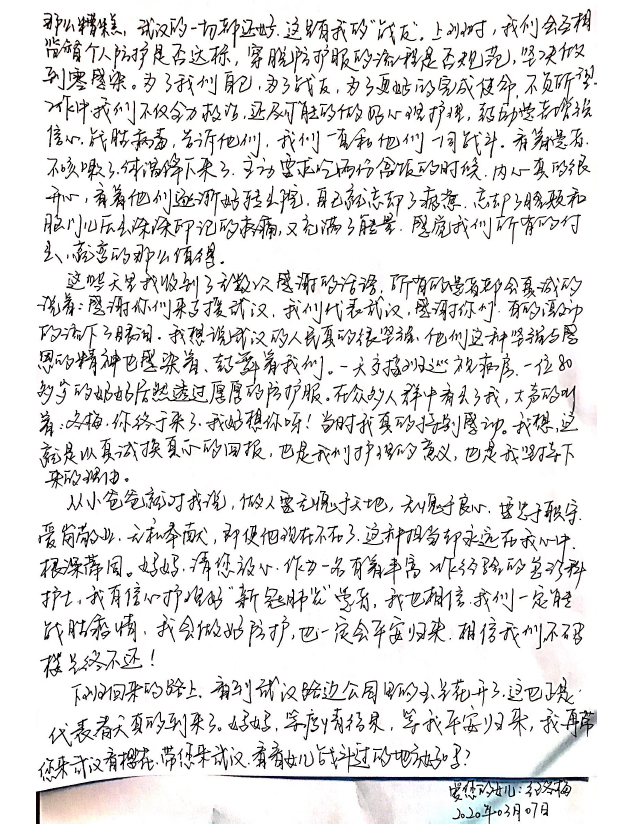 那么糟糕，武汉的一切都还好。这里有我的“战友”。上班时，我们会互相
监督个人防护是否达标，穿脱防护服的流程是否规范，坚决做
到零感染。为了我们自己，为了战友，为了更好的完成使命，不负所望。
工作中我们不仅全力救治，还尽可能的做好心理护理，鼓励患者增强
信心，战胜病毒，告诉他们，我们一直和他们一同战斗。看着患者
不咳嗽了，体温降下来了，主动要求吃两份盒饭的时候，内心真的很
开心，看着他们逐渐好转出院，自己就忘却了疲惫，忘却了脸颊和
脑门儿压出深深印记的疼痛，又充满了能量，感觉我们所有的付
出，都变的那么值得。
这些天里我收到了无数次感谢的话语，所有的患者都会真诚的
说着：感谢你们来支援武汉，我们代表武汉，感谢你们。有的激动
的流下了眼泪。我想说武汉的人民真的很坚强，他们这种坚强与感
恩的精神也感染着、鼓舞着我们。一天交接班巡视病房，一位80
多岁的奶奶居然透过厚厚的防护服，在众多人群中看出了我，大声的叫
着：冬梅，你终于来了，我好想你呀！当时我真的特别感动。我想，这
就是以真诚换真心的回报，也是我们护理的意义，也是我坚持下
来的理由。
从小爸爸就对我说，做人要无愧于天地，无愧于良心，要忠于职守
爱岗敬业，无私奉献，即使他现在不在了，这种担当却永远在我心中
根深蒂固。妈妈，请您放心，作为一名有着丰富工作经验的急诊科
护士，我有信心护理好“新冠肺炎”患者，我也相信，我们一定能
战胜疫情，我会做好防护，也一定会平安归来，相信我们不破
楼兰终不还！
下班回来的路上，看到武汉路边公园里的玉兰花开了，这也正是
代表春天真的到来了。妈妈，等疫情结束，等我平安归来，我再带
您来武汉看樱花，带您来武汉，看看女儿战斗过的地方好吗？
爱您的女儿：冬梅
2020年03月07日